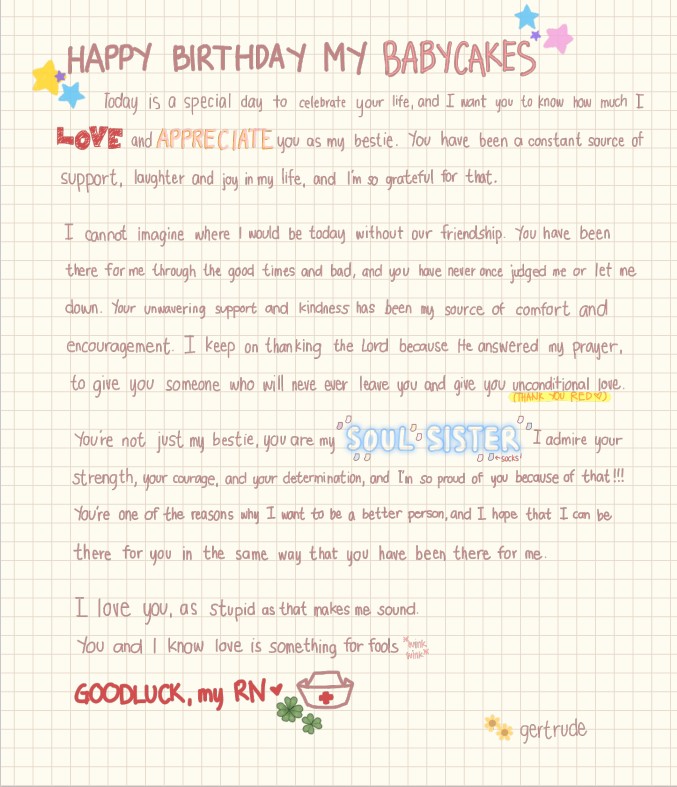 HAPPY BIRTHDAY MY BABYCAKES
Today is a special day to celebrate your life, and I want you to know how much I
LOVE and APPRECIATE you as my bestie. You have been a constant source of
support, laughter and joy in my life, and I'm so grateful for that.
I cannot imagine where I would be today without our friendship. You have been
there for me through the good times and bad, and you have never once judged me or let me
down. Your unwavering support and kindness has been my source of comfort and
encouragement. I keep on thanking the Lord because He answered my prayer,
to give you someone who will neve ever leave you and give you unconditional love.
(THANK YOU RED♡)
You're not just my bestie, you are my SOUL SISTER I admire your
←socks!
strength, your courage, and your determination, and I'm so proud of you because of that!!!
You're one of the reasons why I want to be a better person, and I hope that I can be
there for you in the same way that you have been there for me.
I love you, as stupid as that makes me sound.
You and I know love is something for fools *wink
wink*
GOODLUCK, my RN ♥
gertrude